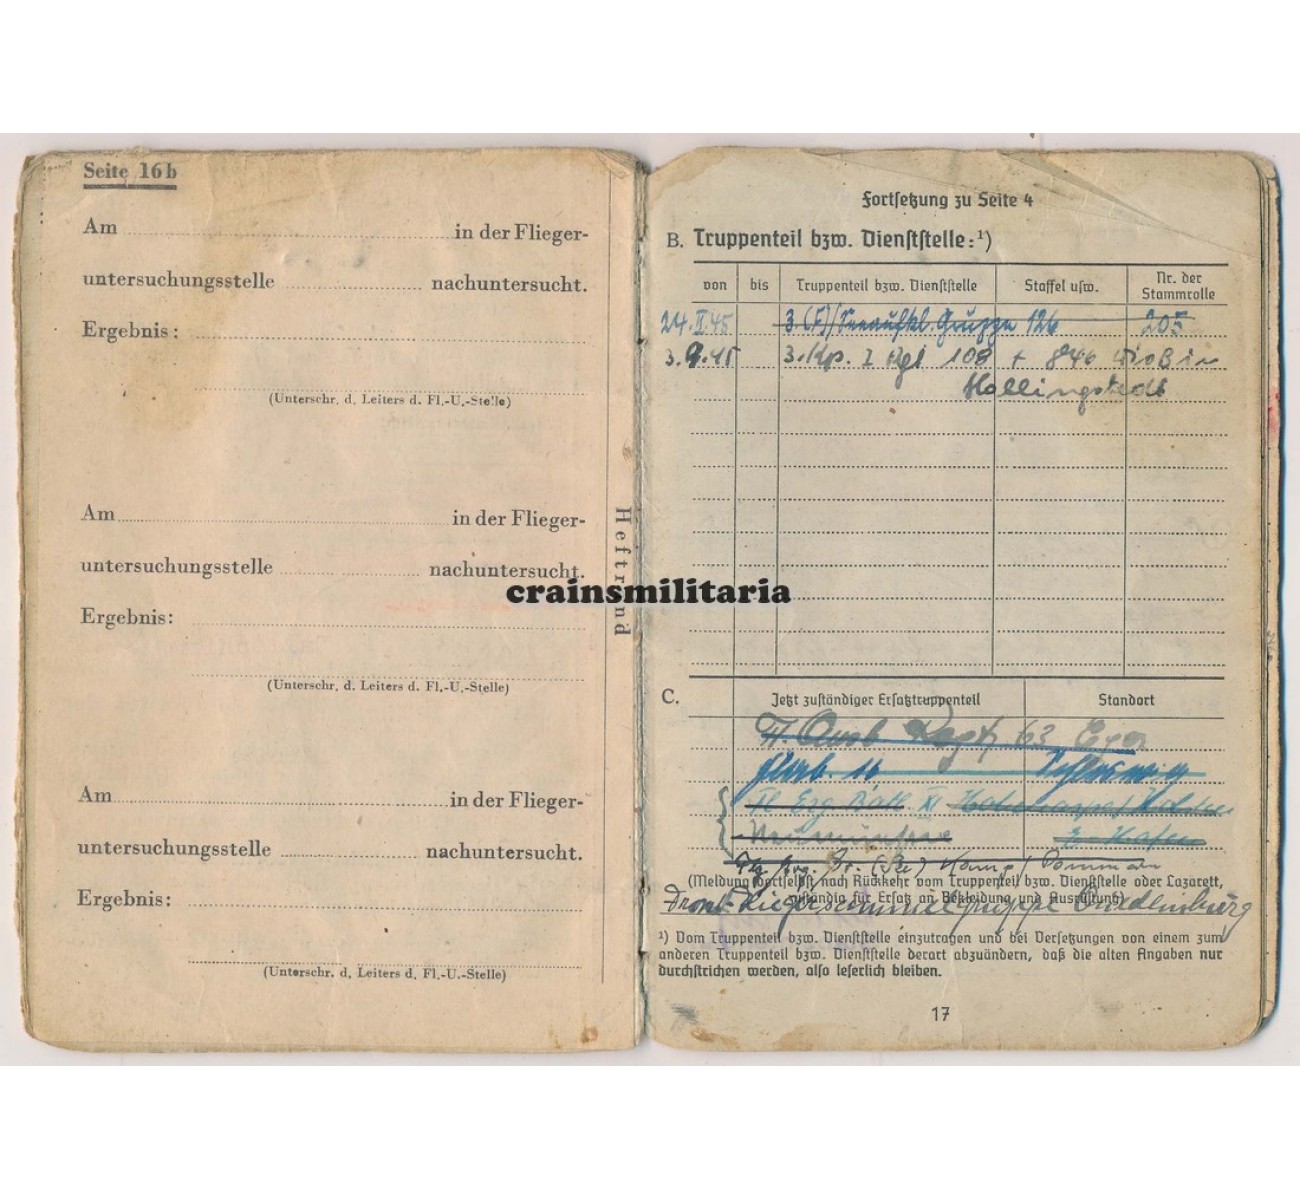 Seite 16b
Am in der Flieger-
untersuchungsstelle nachuntersucht.
Ergebnis:
(Unterschr. d. Leiters d. Fl.-U.-Stelle)
Am in der Flieger-
untersuchungsstelle nachuntersucht.
Ergebnis:
(Unterschr. d. Leiters d. Fl.-U.-Stelle)
Am in der Flieger-
untersuchungsstelle nachuntersucht.
Ergebnis:
(Unterschr. d. Leiters d. Fl.-U.-Stelle)
Heftrand
crainsmilitaria
Fortsetzung zu Seite 4
B. Truppenteil bzw. Dienststelle:¹)
von bis Truppenteil bzw. Dienststelle Staffel usw. Nr. der Stammrolle
3.(F)/Seeaufkl. Gruppe 126 205
3. Kp. I Rgt 108 + 846
Hollingstedt
C. Jetzt zuständiger Ersatztruppenteil Standort
Fl. Ausb Regt 63 Eger
Schleswig
Fl Erg Batl. XI
Neumünster
Kamp/Pommern
(Meldung dortselbst nach Rückkehr vom Truppenteil bzw. Dienststelle oder Lazarett,
zuständig für Ersatz an Bekleidung und Ausrüstung)
Frontfliegersammelgruppe Quedlinburg
¹) Vom Truppenteil bzw. Dienststelle einzutragen und bei Versetzungen von einem zum
anderen Truppenteil bzw. Dienststelle derart abzuändern, daß die alten Angaben nur
durchstrichen werden, also leserlich bleiben.
17